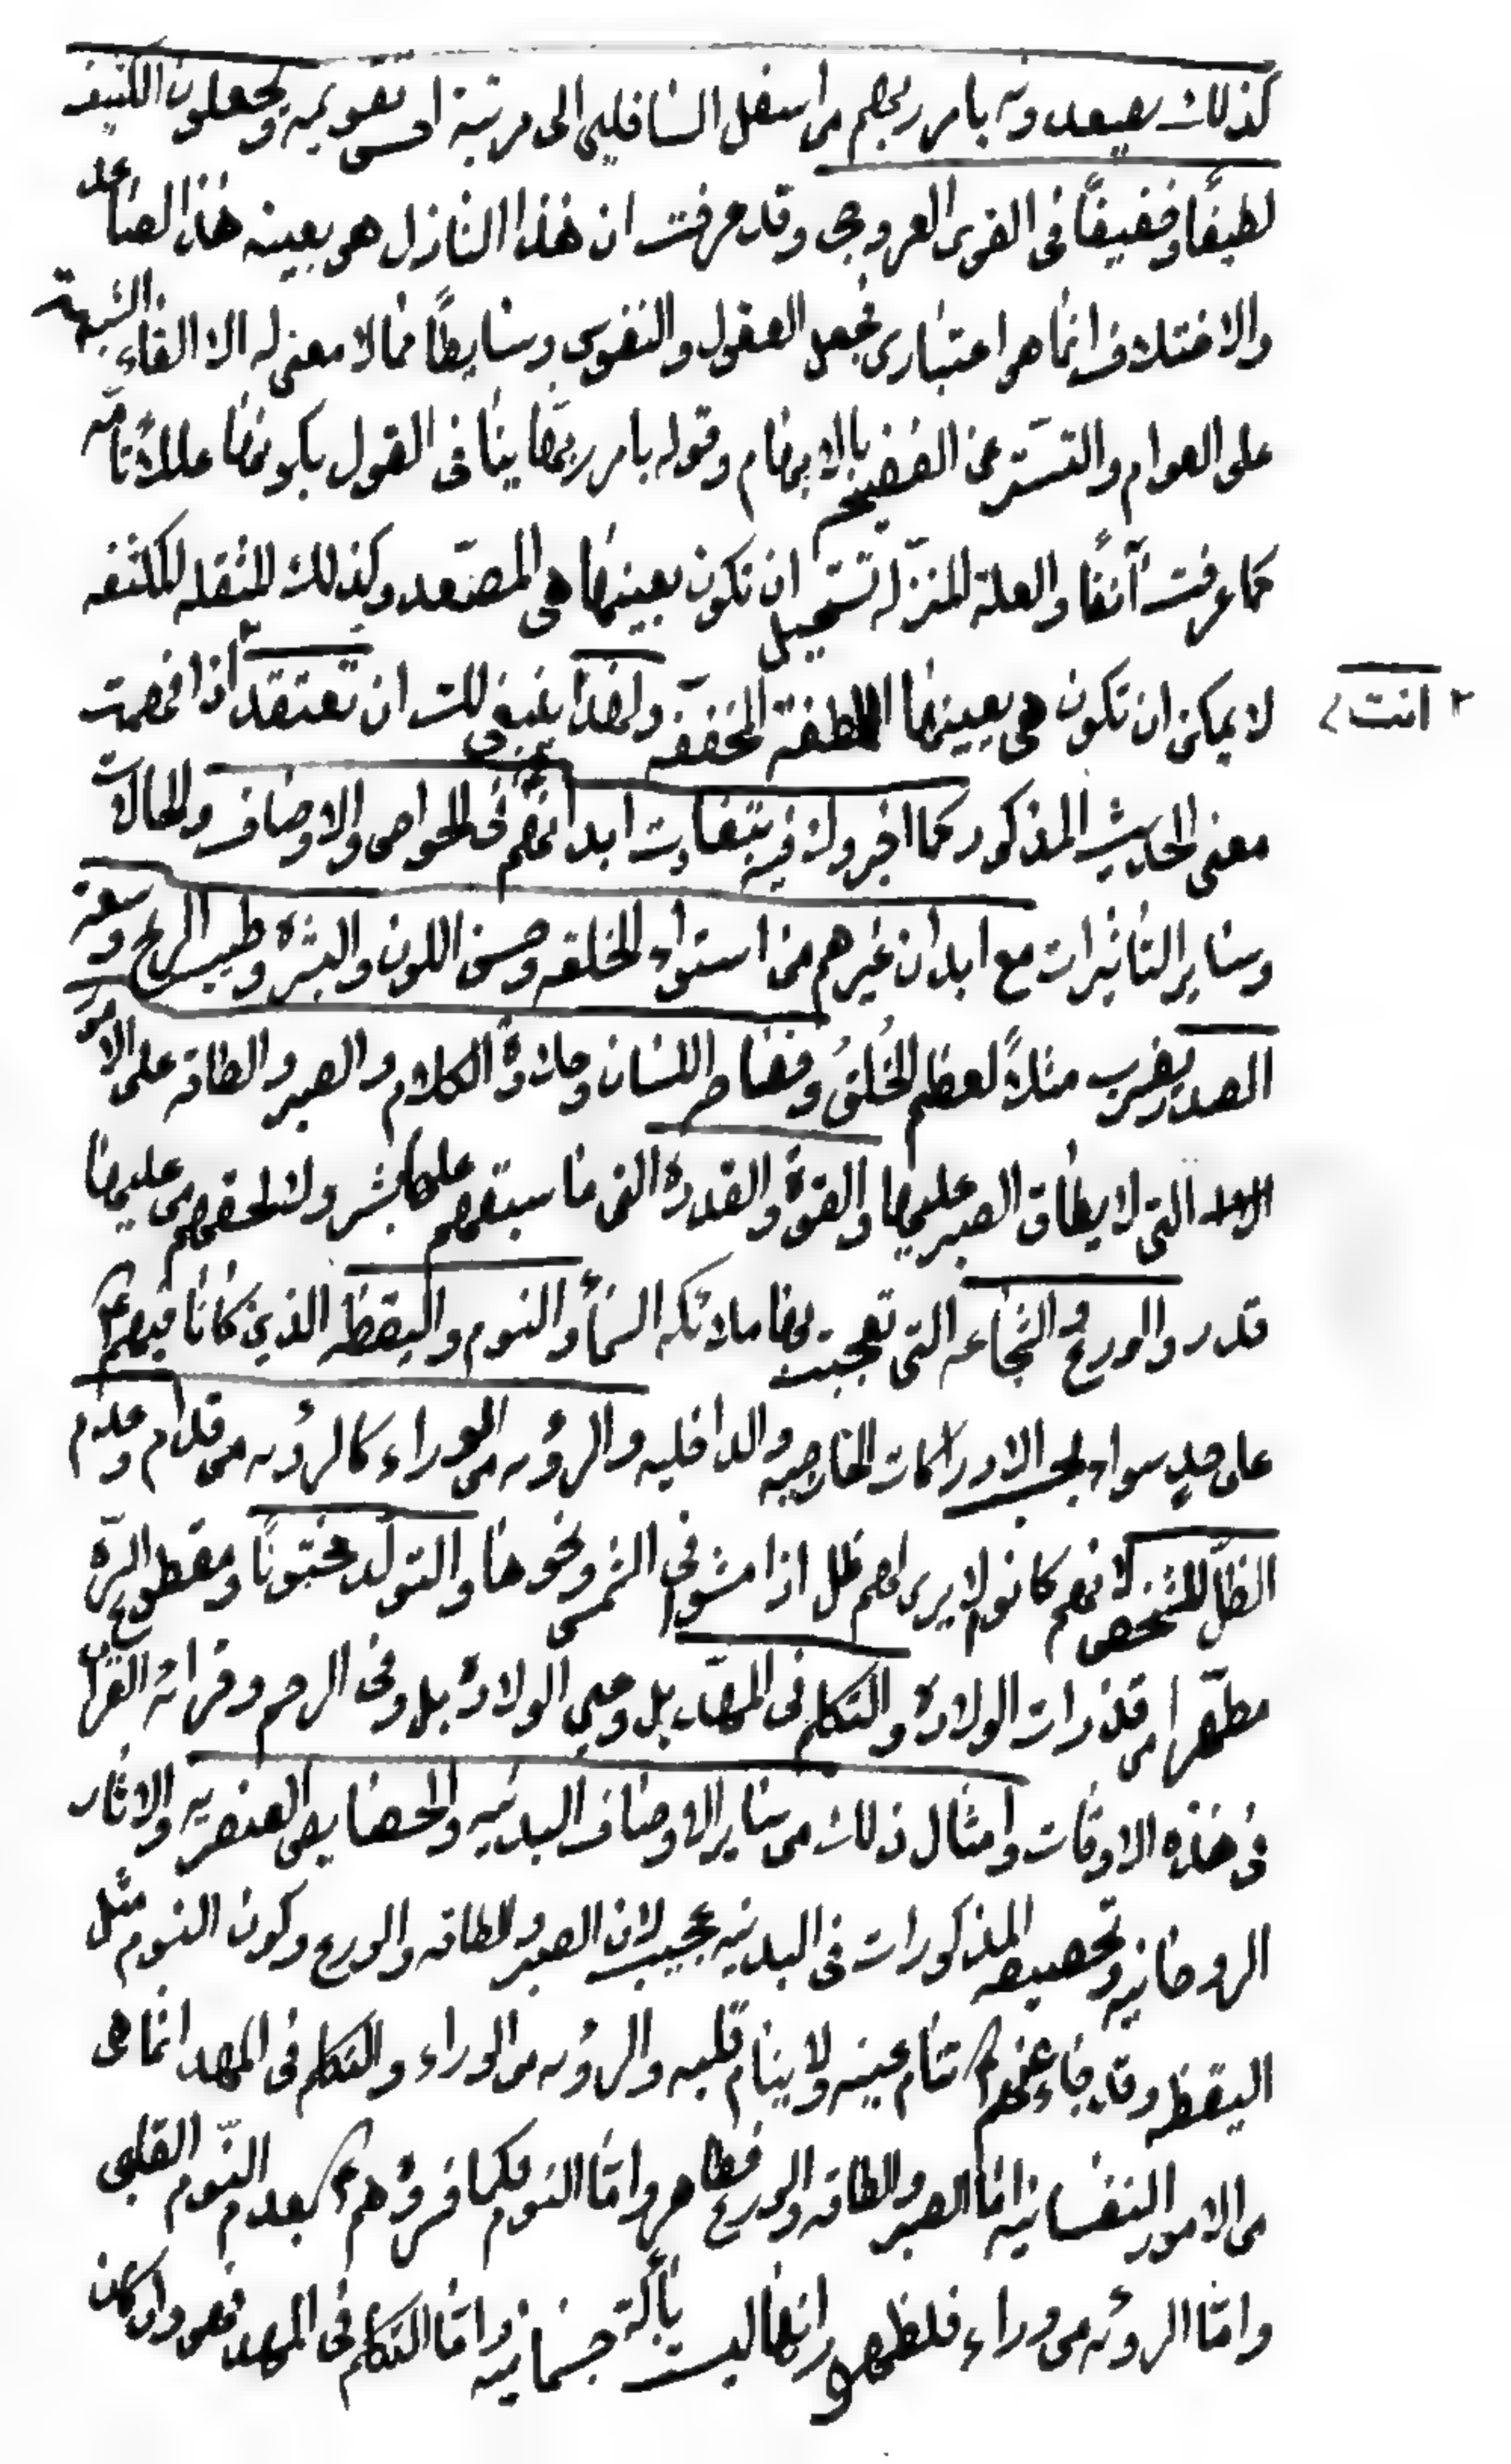 كذلك يصعدونه بامر ربهم من اسفل السافلين الى مرتبة احسن تقويمه ويجعلون الكثيف
لطيفًا وخفيفًا فى القوس العروجى وقد عرفت ان هذا النازل هو بعينه هذا الصاعد
والاختلاف انما هو اعتبارى فجعل العقول والنفوس وسايطًا مما لا معنى له الا القاء الشبهة
على العوام والتستر عن الفضيحة بالابهام وقوله بامر ربها ينافى القول بكونها عللاً تامّه
كما عرفت آنفًا والعلة المنزلة تستحيل ان تكون بعينها هى المصعّد وكذلك المثقله المكثفه
لا يمكن ان تكون هى بعينها الملطفة المخففه ولهذا ينبغى لك ان تعتقد اذا فهمت
٢ انت
معنى الحديث المذكور كما اخبروك فيه بتفاوت ابدانهم فى الخواص والاوصاف والحالات
وساير التاثيرات مع ابدان غيرهم من استواء الخلقه وحسن اللون والبشرة وطيب الريح وسعة
الصدر يضرب مثلاً لعظم الخُلقُ وفصاحة اللسان وحلاوة الكلام والصبر والطاقه على الامور
التى لا يطاق الصبر عليها والقوة والقدرة التى ما سبقهم عليها بشر ولن يلحقهم من عليها
قدر والورع والشجاعه التى تعجبت بها ملائكه السمأ والنوم واليقظه الذين كانا فيهم ع
على حدٍ سواء بحسب الادراكات الخارجيه والداخليه والرؤيه من الوراء كالرؤيه من قدام وعدم
الظلّ للشخص لانهم كانوا لا يرى لهم ظل اذا مشوا فى الشمس ونحوها والتولّد مختونًا ومقطوع السرّة
مطهّرا من قذرات الولادة والتكلم فى المهد بل وحين الولادة بل وفى الرحم وقرائة القرآن
فى هذه الاوقات وامثال ذلك من ساير الاوصاف البدنيه والخصايص العنصريه والاثار
الروحانيه وتخصيصه المذكورات فى البدنيه عجيب لان الصبر والطاقه والورع وكون النوم مثل
اليقظه وقد جاء عنهم ع تنام عينه ولا ينام قلبه والرؤيه من الوراء والتكلم فى المهد انما هى
من الامور النفسانيه اما الصبر والطاقه والورع فظاهر واما النوم فكما فسروهم ع بعدم النوم القلبى
واما الرؤيه من وراء فلظهور انها ليست بألة جسمانيه واما التكلم فى المهد فهو وان كان